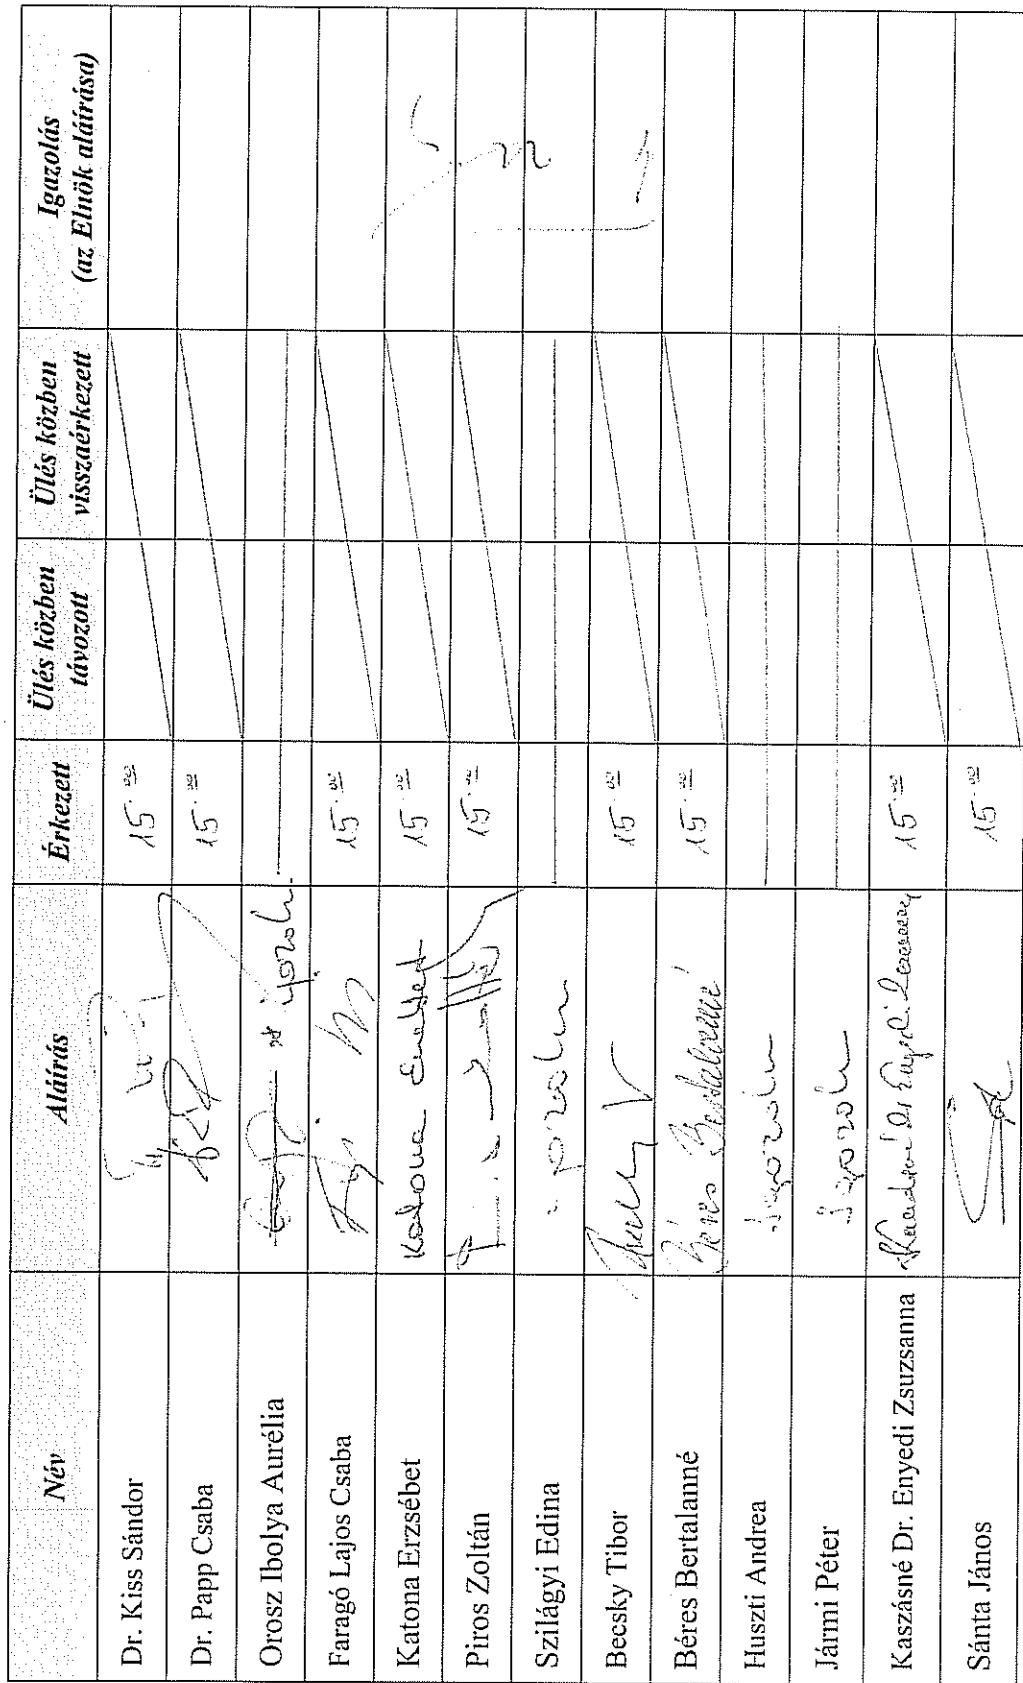 Név Aláírás Érkezett Ülés közben távozott Ülés közben visszaérkezett Igazolás (az Elnök aláírása)
Dr. Kiss Sándor 15.00
Dr. Papp Csaba 15.00
Orosz Ibolya Aurélia igazolt
Faragó Lajos Csaba 15.00
Katona Erzsébet Katona Erzsébet 15.00
Piros Zoltán 15.00
Szilágyi Edina igazolt
Becsky Tibor 15.00
Béres Bertalanné Béres Bertalanné 15.00
Huszti Andrea igazolt
Jármi Péter igazolt
Kaszásné Dr. Enyedi Zsuzsanna 15.00
Sánta János 15.00